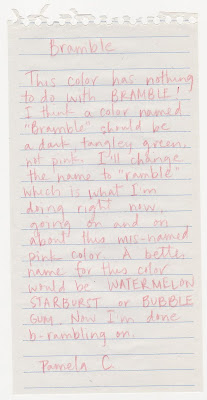 Bramble
This color has nothing
to do with BRAMBLE!
I think a color named
"Bramble" should be
a dark tangley green,
not pink. I'll change
the name to "ramble"
which is what I'm
doing right now,
going on and on
about this mis-named
pink color. A better
name for this color
would be WATERMELON
STARBURST or BUBBLE
GUM. Now I'm done
b-rambling on.
Pamela C.